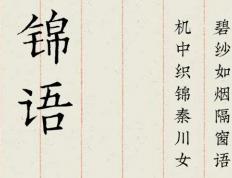 锦语
碧纱如烟隔窗语
机中织锦秦川女